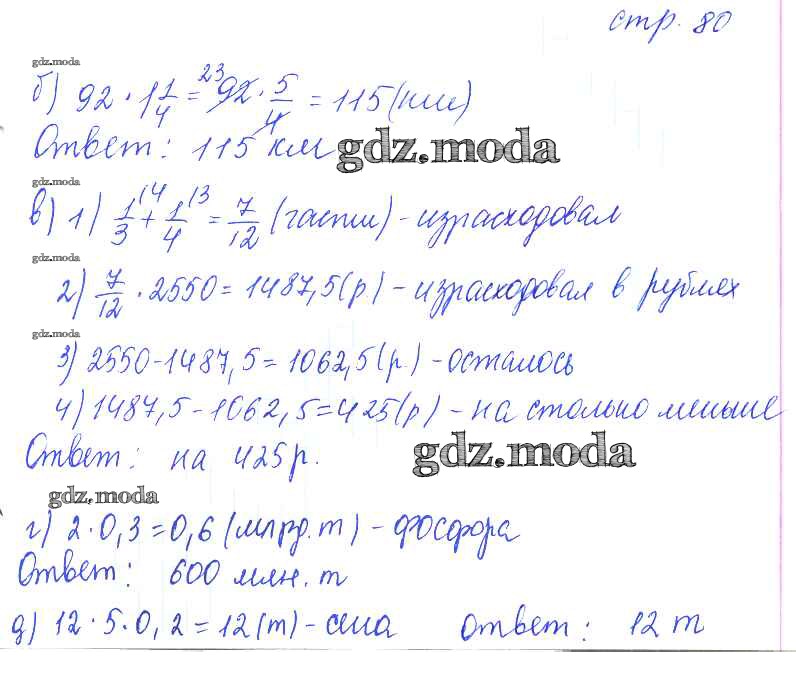 стр. 80
gdz.moda
б) 92 · 1 1/4 = 92 23 · 5/4 = 115 (км)
Ответ: 115 км gdz.moda
gdz.moda
в) 1) 1/3 \4 + 1/4 \3 = 7/12 (части) - израсходовал
gdz.moda
2) 7/12 · 2550 = 1487,5 (р.) - израсходовал в рублях
gdz.moda
3) 2550 - 1487,5 = 1062,5 (р.) - осталось
4) 1487,5 - 1062,5 = 425 (р) - на столько меньше
Ответ: на 425 р. gdz.moda
gdz.moda
г) 2 · 0,3 = 0,6 (млрд. т) - фосфора
Ответ: 600 млн. т
д) 12 · 5 · 0,2 = 12 (т) - сена Ответ: 12 т